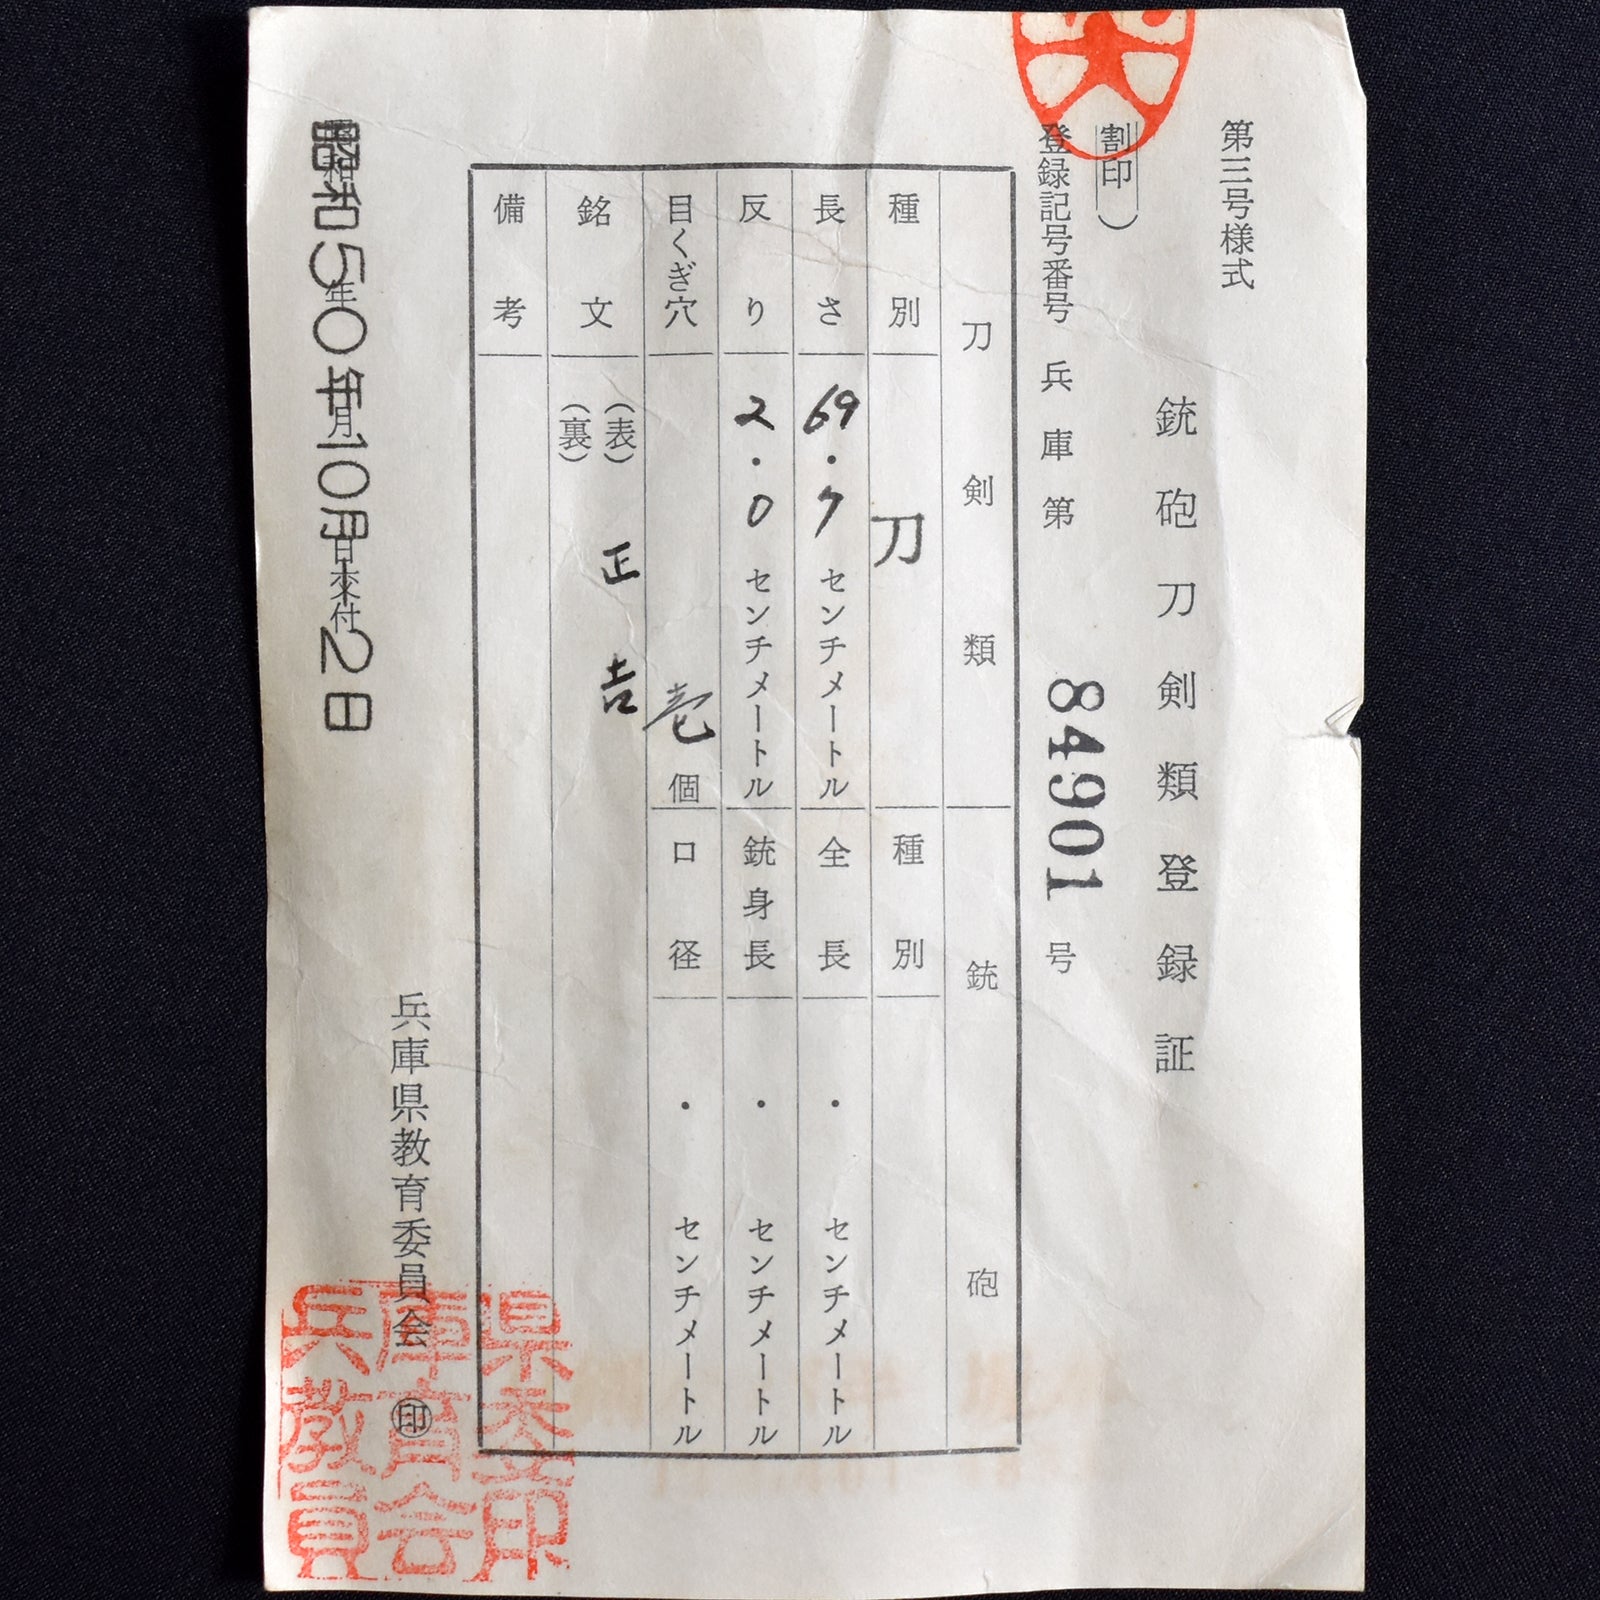 第三号様式
銃砲刀剣類登録証
(割印)
登録記号番号 兵庫第 84901 号
刀剣類 銃砲
種別 刀 種別
長さ 69.7 センチメートル 全長 ・ センチメートル
反り 2.0 センチメートル 銃身長 ・ センチメートル
目くぎ穴 壱 個 口径 ・ センチメートル
銘文 (表) 正吉
(裏)
備考
昭和50年10月2日
年 月 日交付
兵庫県教育委員会 ㊞
兵庫県
教育委
員会印